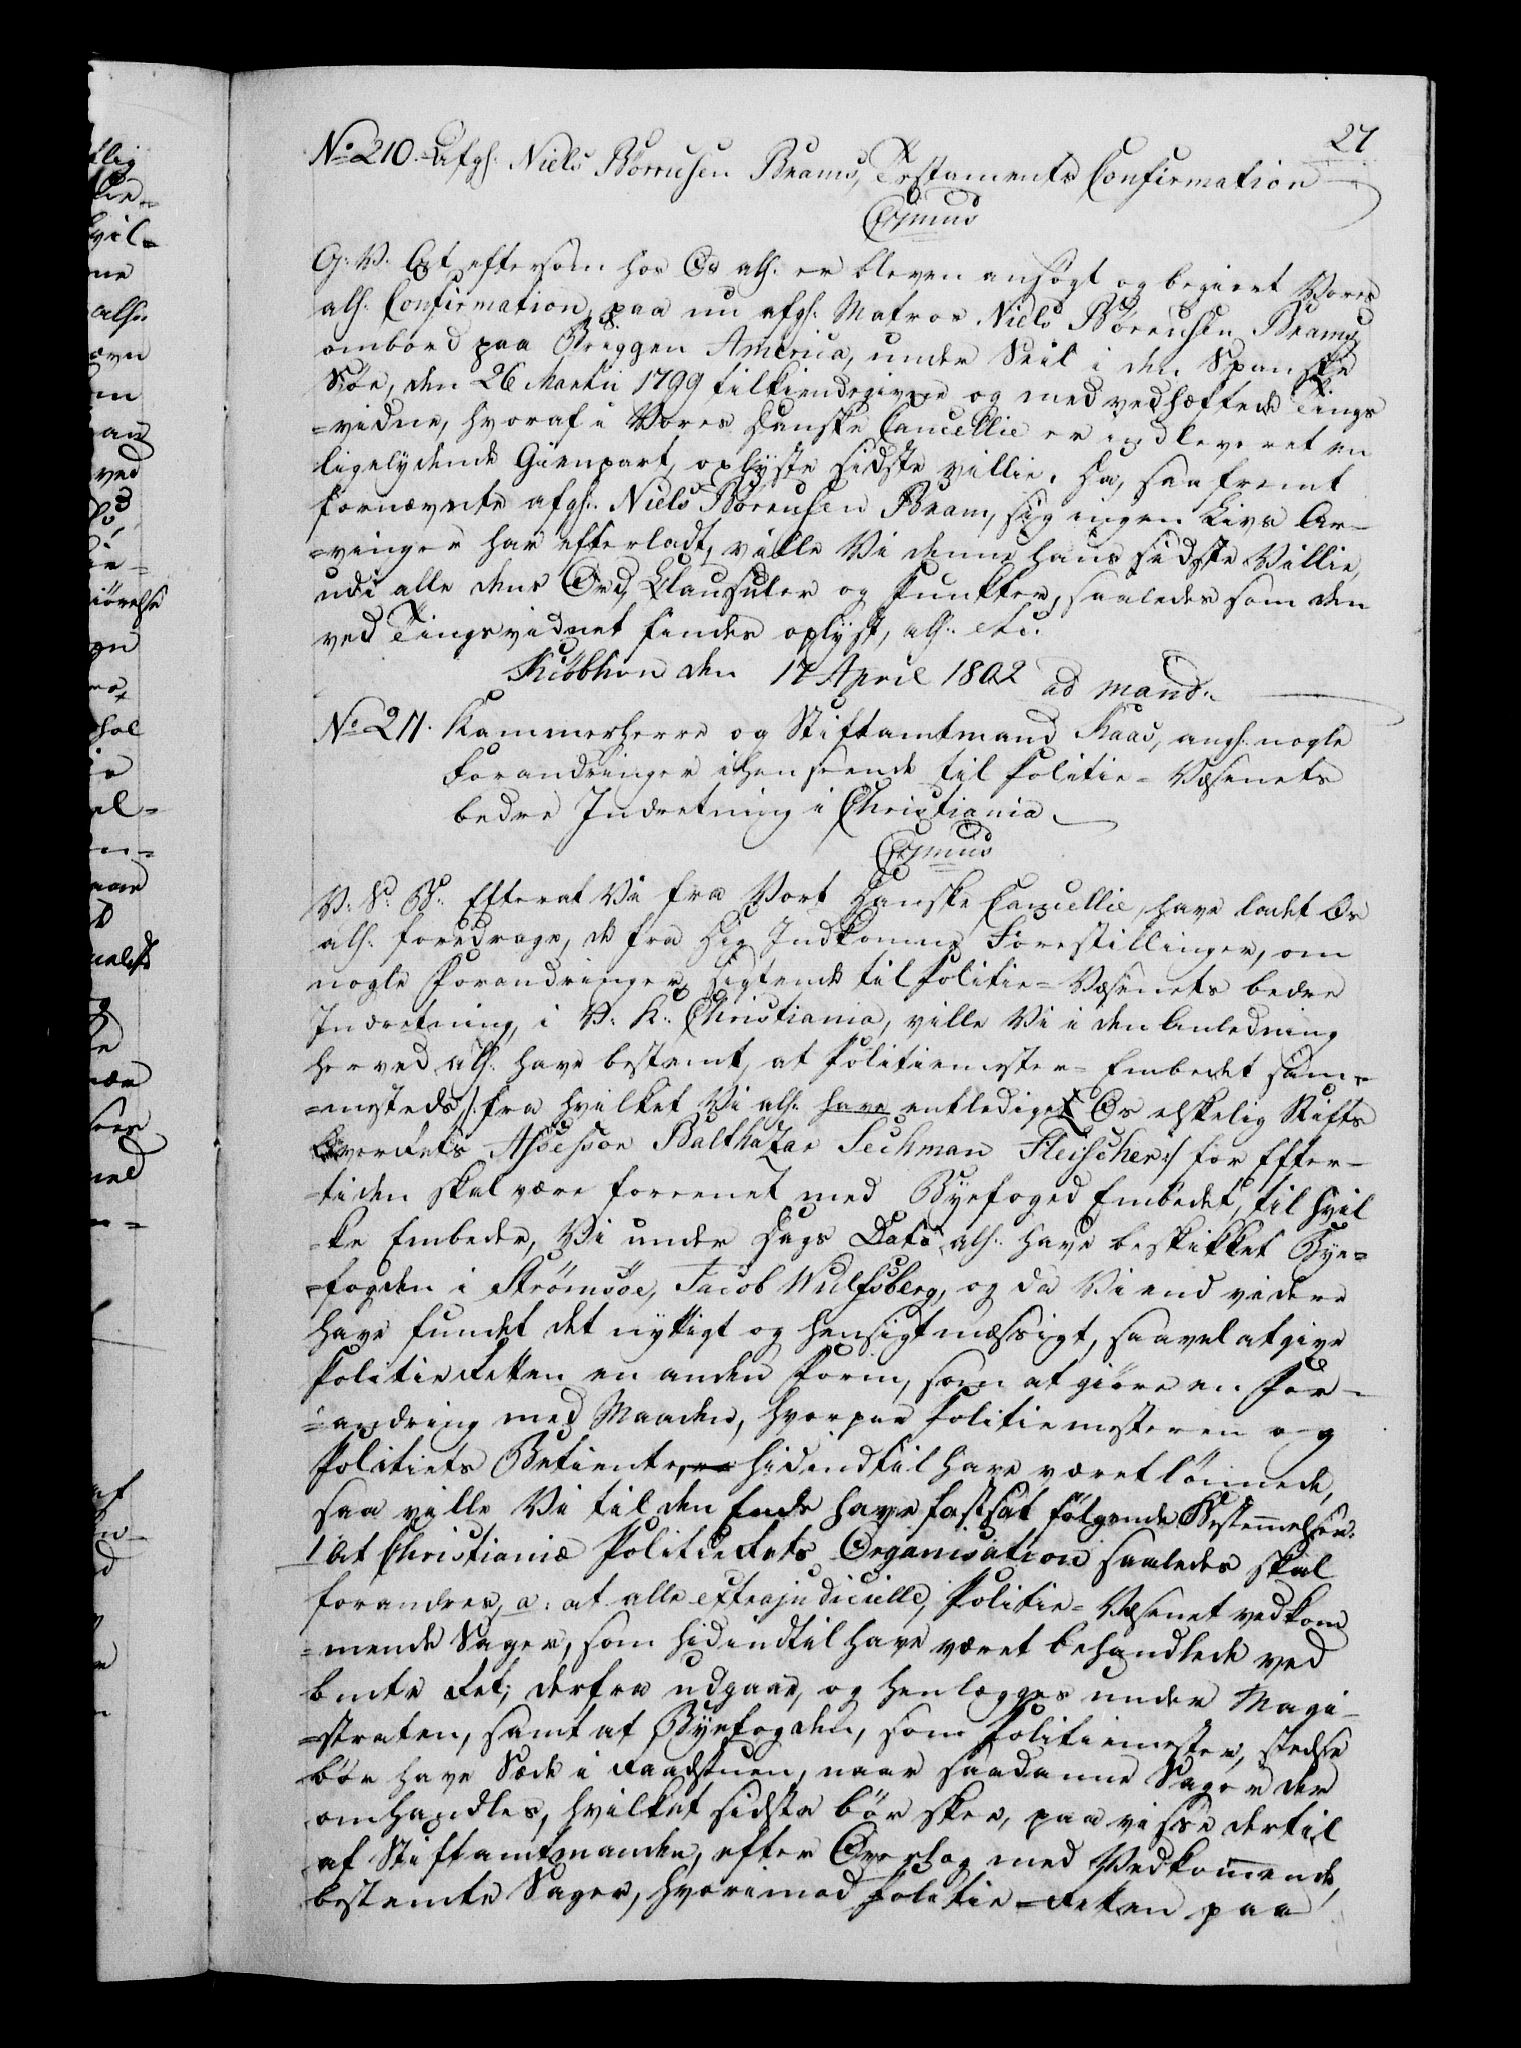 27
No 210. Afgs: Niels Börrusen Brams, Testaments Confirmation
Crsmus
G: V: At eftersom hos Os als. er bleven ansögt og begiert Vores
als. Confirmation, paa nu afgs: Matros Niels Börrusen Brams,
ombord paa Briggen America, under Seil i den Spanske
Söe, den 26 Martii 1799 tilkiendegivne og med vedhæftede Tings
=vidne, hvoraf i Vores Danske Cancellie er indleveret en
ligelydende Gienpart, oplyste sidste Villie. Da, saafremt
fornævnte afgs. Niels Börrusen Bram, sig ingen Livs Ar-
=vinger har efterladt, ville Vi denne hans sidste Villie,
udi alle dens Ord, Clausuler og Punkter, saaledes som den
ved Tingsvidnet findes oplyst, als. etc.
Kiöbhvn den 17 April 1802 ad mand:
No 211. Kammerherre og Stiftamtmand Kaas, angs. nogle
Forandringer i henseende til Politie= Væsenets
bedre Indretning i Christiania
Crsmus
V: S: B: Efterat Vi fra Vort Danske Cancellie, have ladet Os
als. foredrage, de fra Dig Indkomne Forestillinger, om
nogle Forandringer, sigtende til Politie= Væsenets bedre
Indretning, i V: K: Christiania, ville Vi i den Anledning
herved als. have bestemt, at Politiemester= Embedet sam=
=mesteds /: fra hvilket Vi als. have entlediget Os elskelig Stifts
Overrets Assessor Balthazar Seckman Fleischer :/ for Efter-
=tiden skal være foreenet med Byefoged Embedet, til hvil
=ke Embeder, Vi under Dags Dato als. have beskikket Bye=
=fogden i Strömsöe, Jacob Wulfsberg, og da Vi end videre
have fundet det nyttigt og hensigtmæssigt, saavel at give
Politieretten en anden Form, som at giöre en For-
=andring med Maaden, hvorpaa Politiemesteren og
Politiets Betiente, hidindtil have været lönnede,
saa ville Vi til den Ende have fastsat fölgende Bestemmelser:
1 At Christianiæ Politierets Organisation saaledes skal
forandres, a: at alle extrajudicielle, Politie= Væsenet vedkom
=mende Sager, som hidindtil have været behandlede ved
bmte Ret, derfra udgaae, og henlægges under Magi-
=straten, samt at Byefogden, som Politiemester, stedse
bör have Sæde i Raadstuen, naar saadanne Sager der
omhandles, hvilket sidste bör skee, paa visse dertil
af Stiftamtmanden, efter Overlæg med Vedkommende,
bestemte Dage, hvorimod Politie=Retten paa